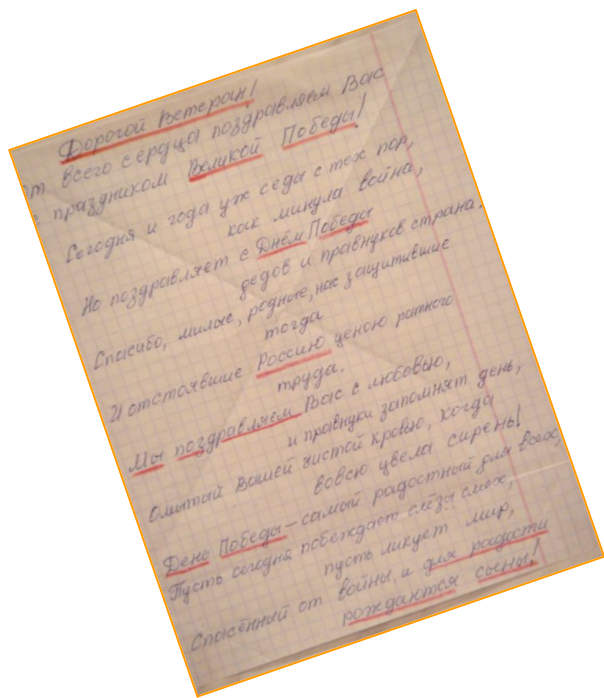 Дорогой Ветеран!
От всего сердца поздравляем Вас
с праздником Великой Победы!
Сегодня и года уж седы с тех пор,
как минула война,
Но поздравляет с Днём Победы
дедов и правнуков страна.
Спасибо, милые, родные, нас защитившие
тогда
И отстоявшие Россию ценою ратного
труда.
Мы поздравляем Вас с любовью,
и правнуки запомнят день,
Омытый Вашей чистой кровью, когда
вовсю цвела сирень!
День Победы – самый радостный для всех,
Пусть сегодня побеждает слёзы смех,
пусть ликует мир,
Спасённый от войны, и для радости
рождаются сыны!